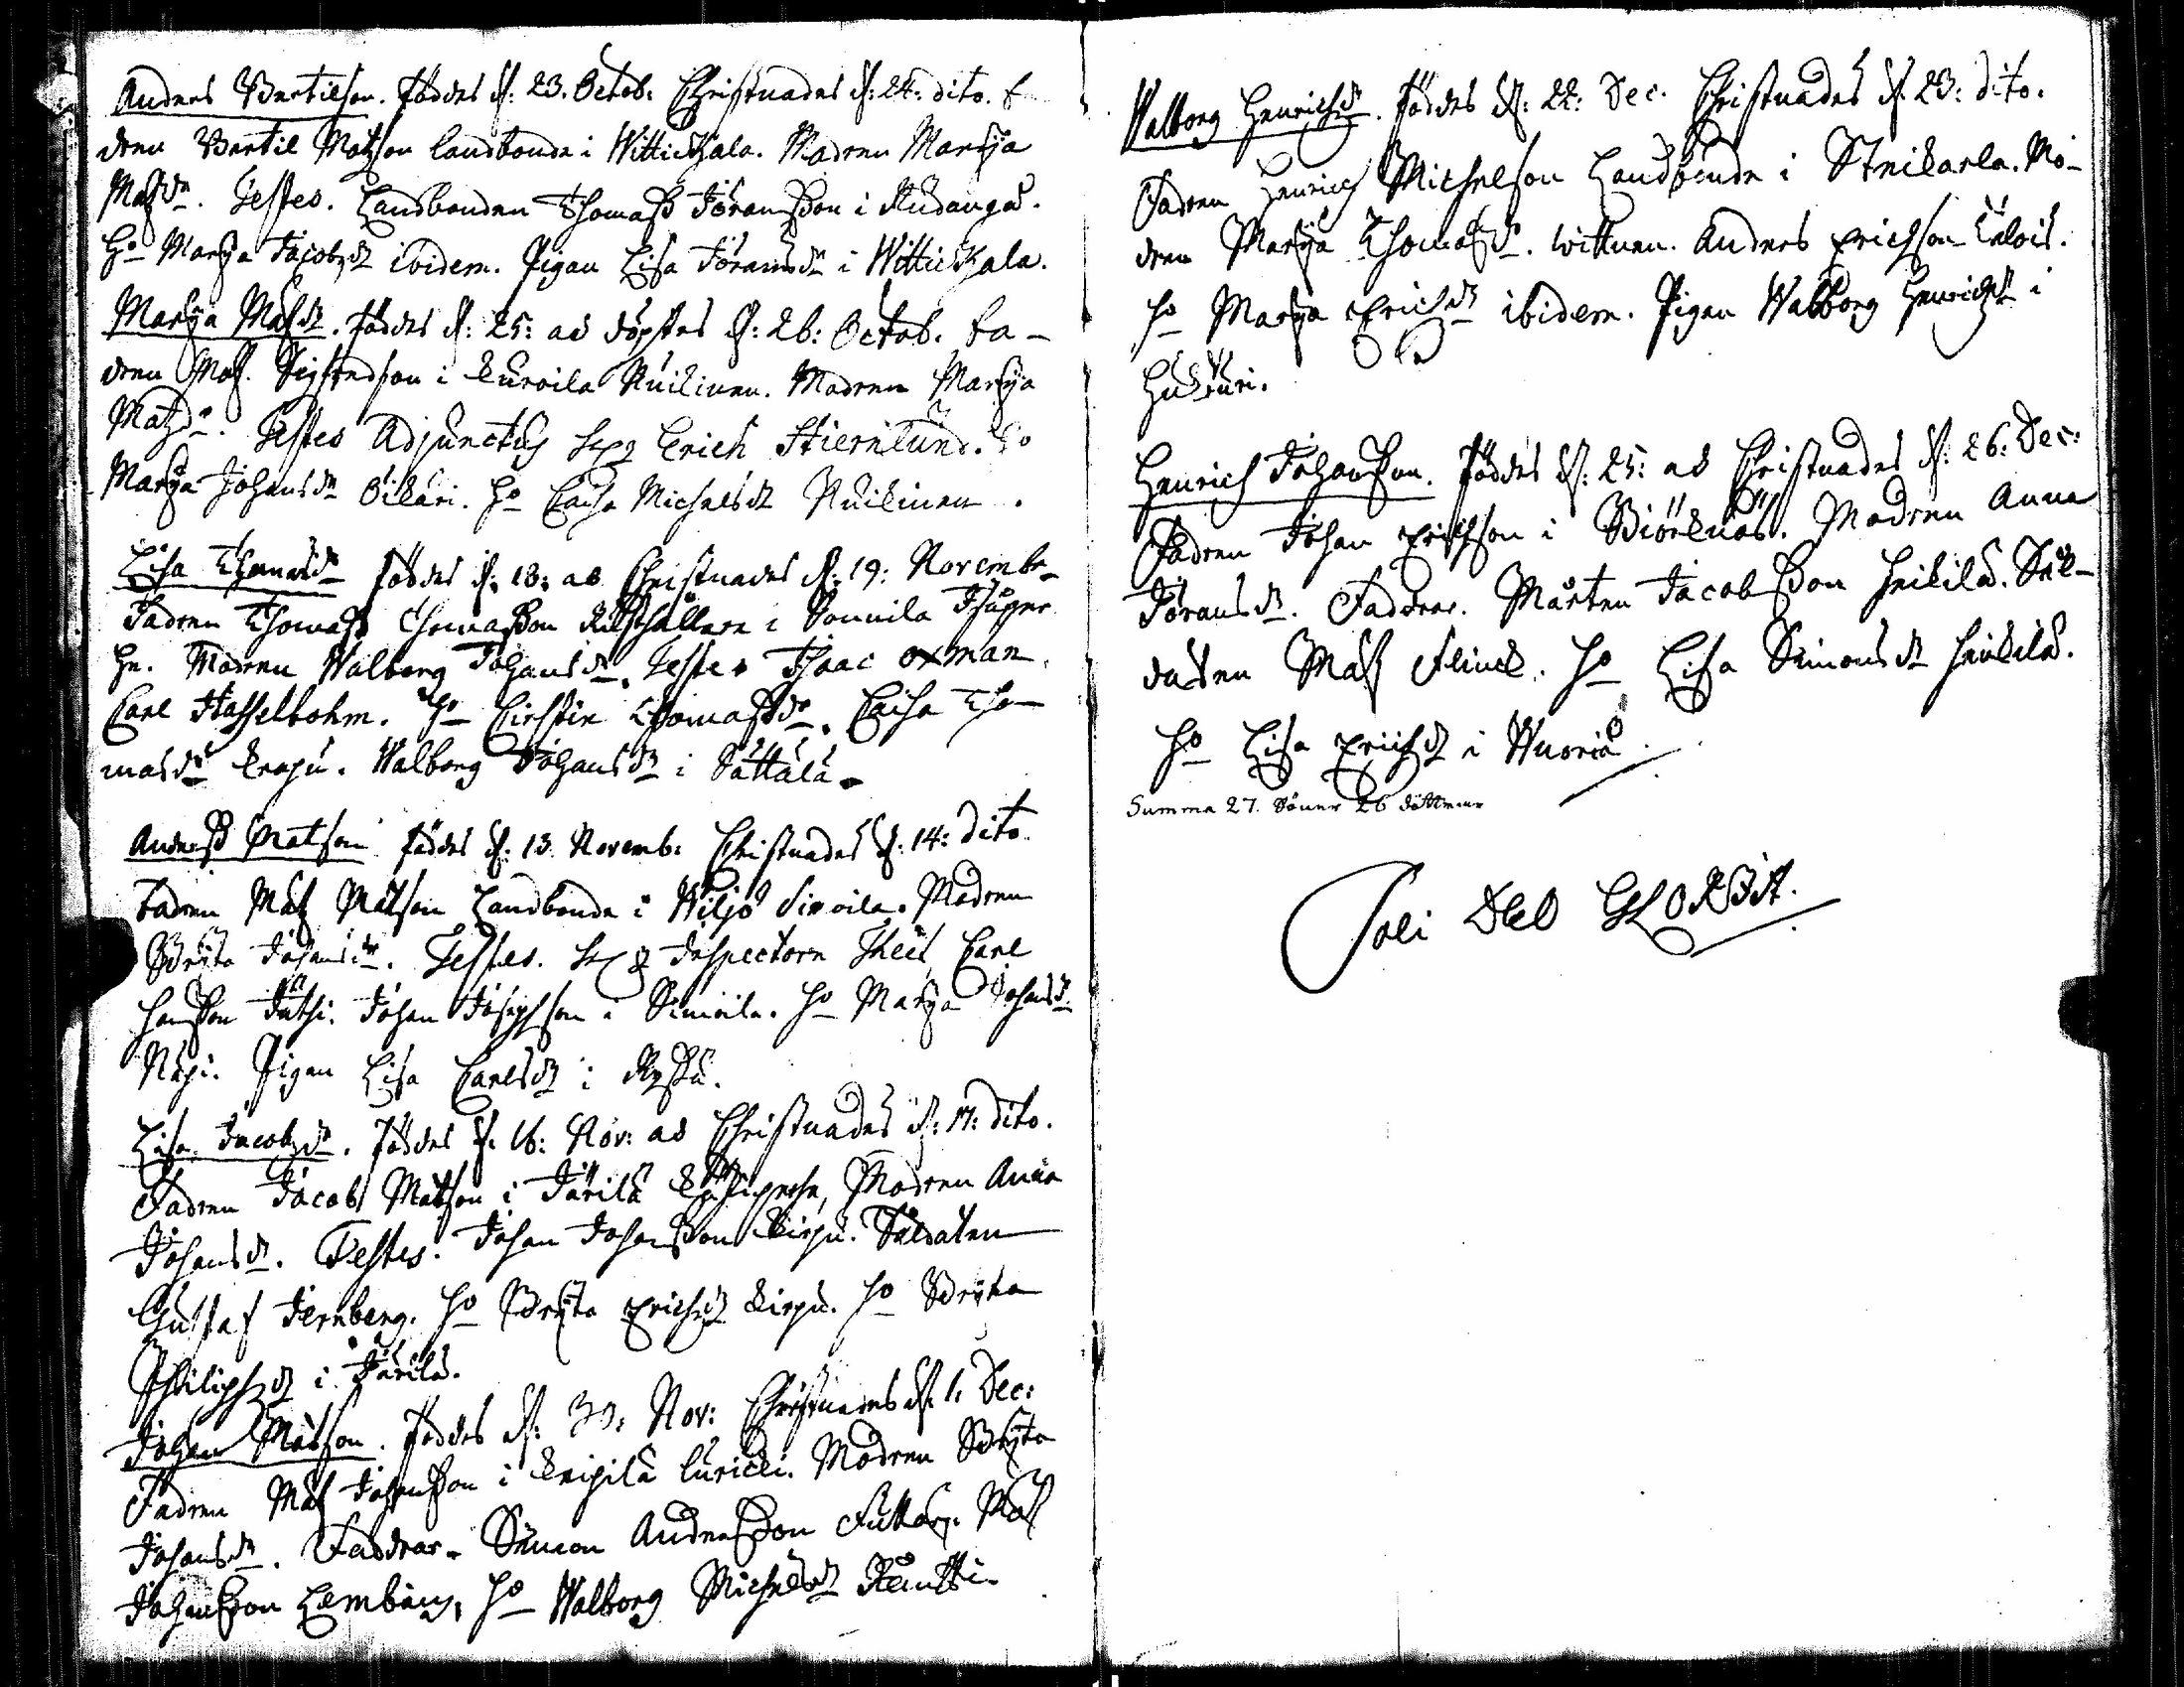 Anders Bertilson. föddes d. 23. Octob: Christnades d: 24: dito. f
dren Bertil Matzson landbonde i Wittickala. Madren Marija
Matzdr. Testes. Landbonden Thomass Jöransson i
Ho Marija Jacobzdr ibidem. Pigan Lisa Jöransdr i Wittickala.
Marija Matzdr. föddes d: 25: ac döptes d: 26: Octob. fa-
dren Matz Sigfredson i Kuroila Nuikinen. Madren Marija
Matzdr. Testes Adjunctus Erich Stiernlund. Ho
Marija Johansdr Oikari. Ho Caisa Michelsdr Nuikinen.
Lisa Thomasdr föddes d: 18: ac Christnades d: 19: Novembr
Fadren Thomass Thomasson Rusthållare i
Madren Walborg Johansdr. Testes Isaac Oxman.
Carl Hasselbohm. Ho Cirstin Thomassdr. Caisa Tho-
masdr Krapu. Walborg Johansdr i Sattala.
Anderss Matson föddes d. 13. Novemb: Christnades d: 14: dito.
fadren Matz Matson Landbonde i Wiljo Simoila. Madren
Brijta Johansdr. Testes. Inspectorn Carl
Hansson Johan Josephson i Simoila. Ho Marija Johansdr
Näpi. Pigan Lisa Carlsdr i
Lisa Jacobzdr. föddes d. 16: Nov: ac Christnades d: 17: dito.
Fadren Jacob Matson i Järilä Madren Anna
Johansdr. Testes. Johan Johansson Kirpu. Soldaten
Gustaf Jernberg. Ho Brijta Erichsdr Kirpu. Ho Brijta
Philipzdr i Järilä.
Johan Matson. föddes d: 30: Nov: Christnades d. 1. Dec:
Fadren Matz Johansson i Knipilä Luricki. Modren Brijta
Johansdr. Faddrar. Simon Andersson Matz
Johansson Ho Walborg Michelsdr
Walborg Henrichsdr. föddes d: 22: Dec. Christnades d. 23: dito.
Fadren Henrich Michelson Landbonde i Mo-
dren Marija Thomasdr. wittnen. Anders Erichson
Ho Marija Erichsdr ibidem. Pigan Walborg Henrichsdr i
Huhturi.
Henrich Johansson. föddes d: 25: ac Christnades d: 26: Dec:
Fadren Johan Erichson i Biörknäs. Modren Anna
Jöransdr. Faddrar. Mårten Jacobsson Heikilä. Sol-
daten Matz Flinck. Ho Lisa Simonsdr Heickilä.
Ho Lisa Erichsdr i Wuoria.
Summa 27. Söner 26 döttrar
Soli DEO GLORIA.